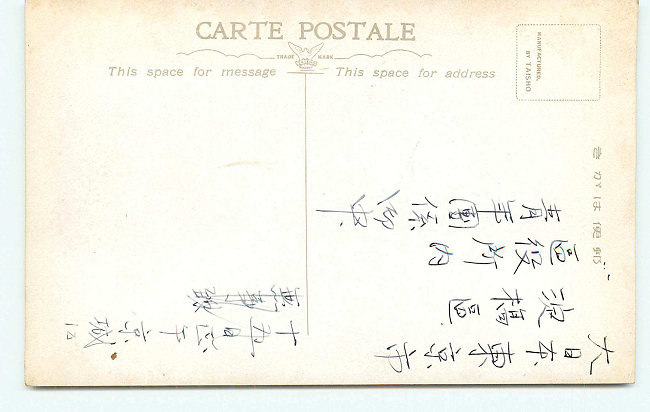 CARTE POSTALE
TRADE MARK
This space for message
This space for address
MANUFACTURED.
BY TAISHO
きかは便郵
大日本東京市
淀橋区
区役所内
青年團係御中
京城